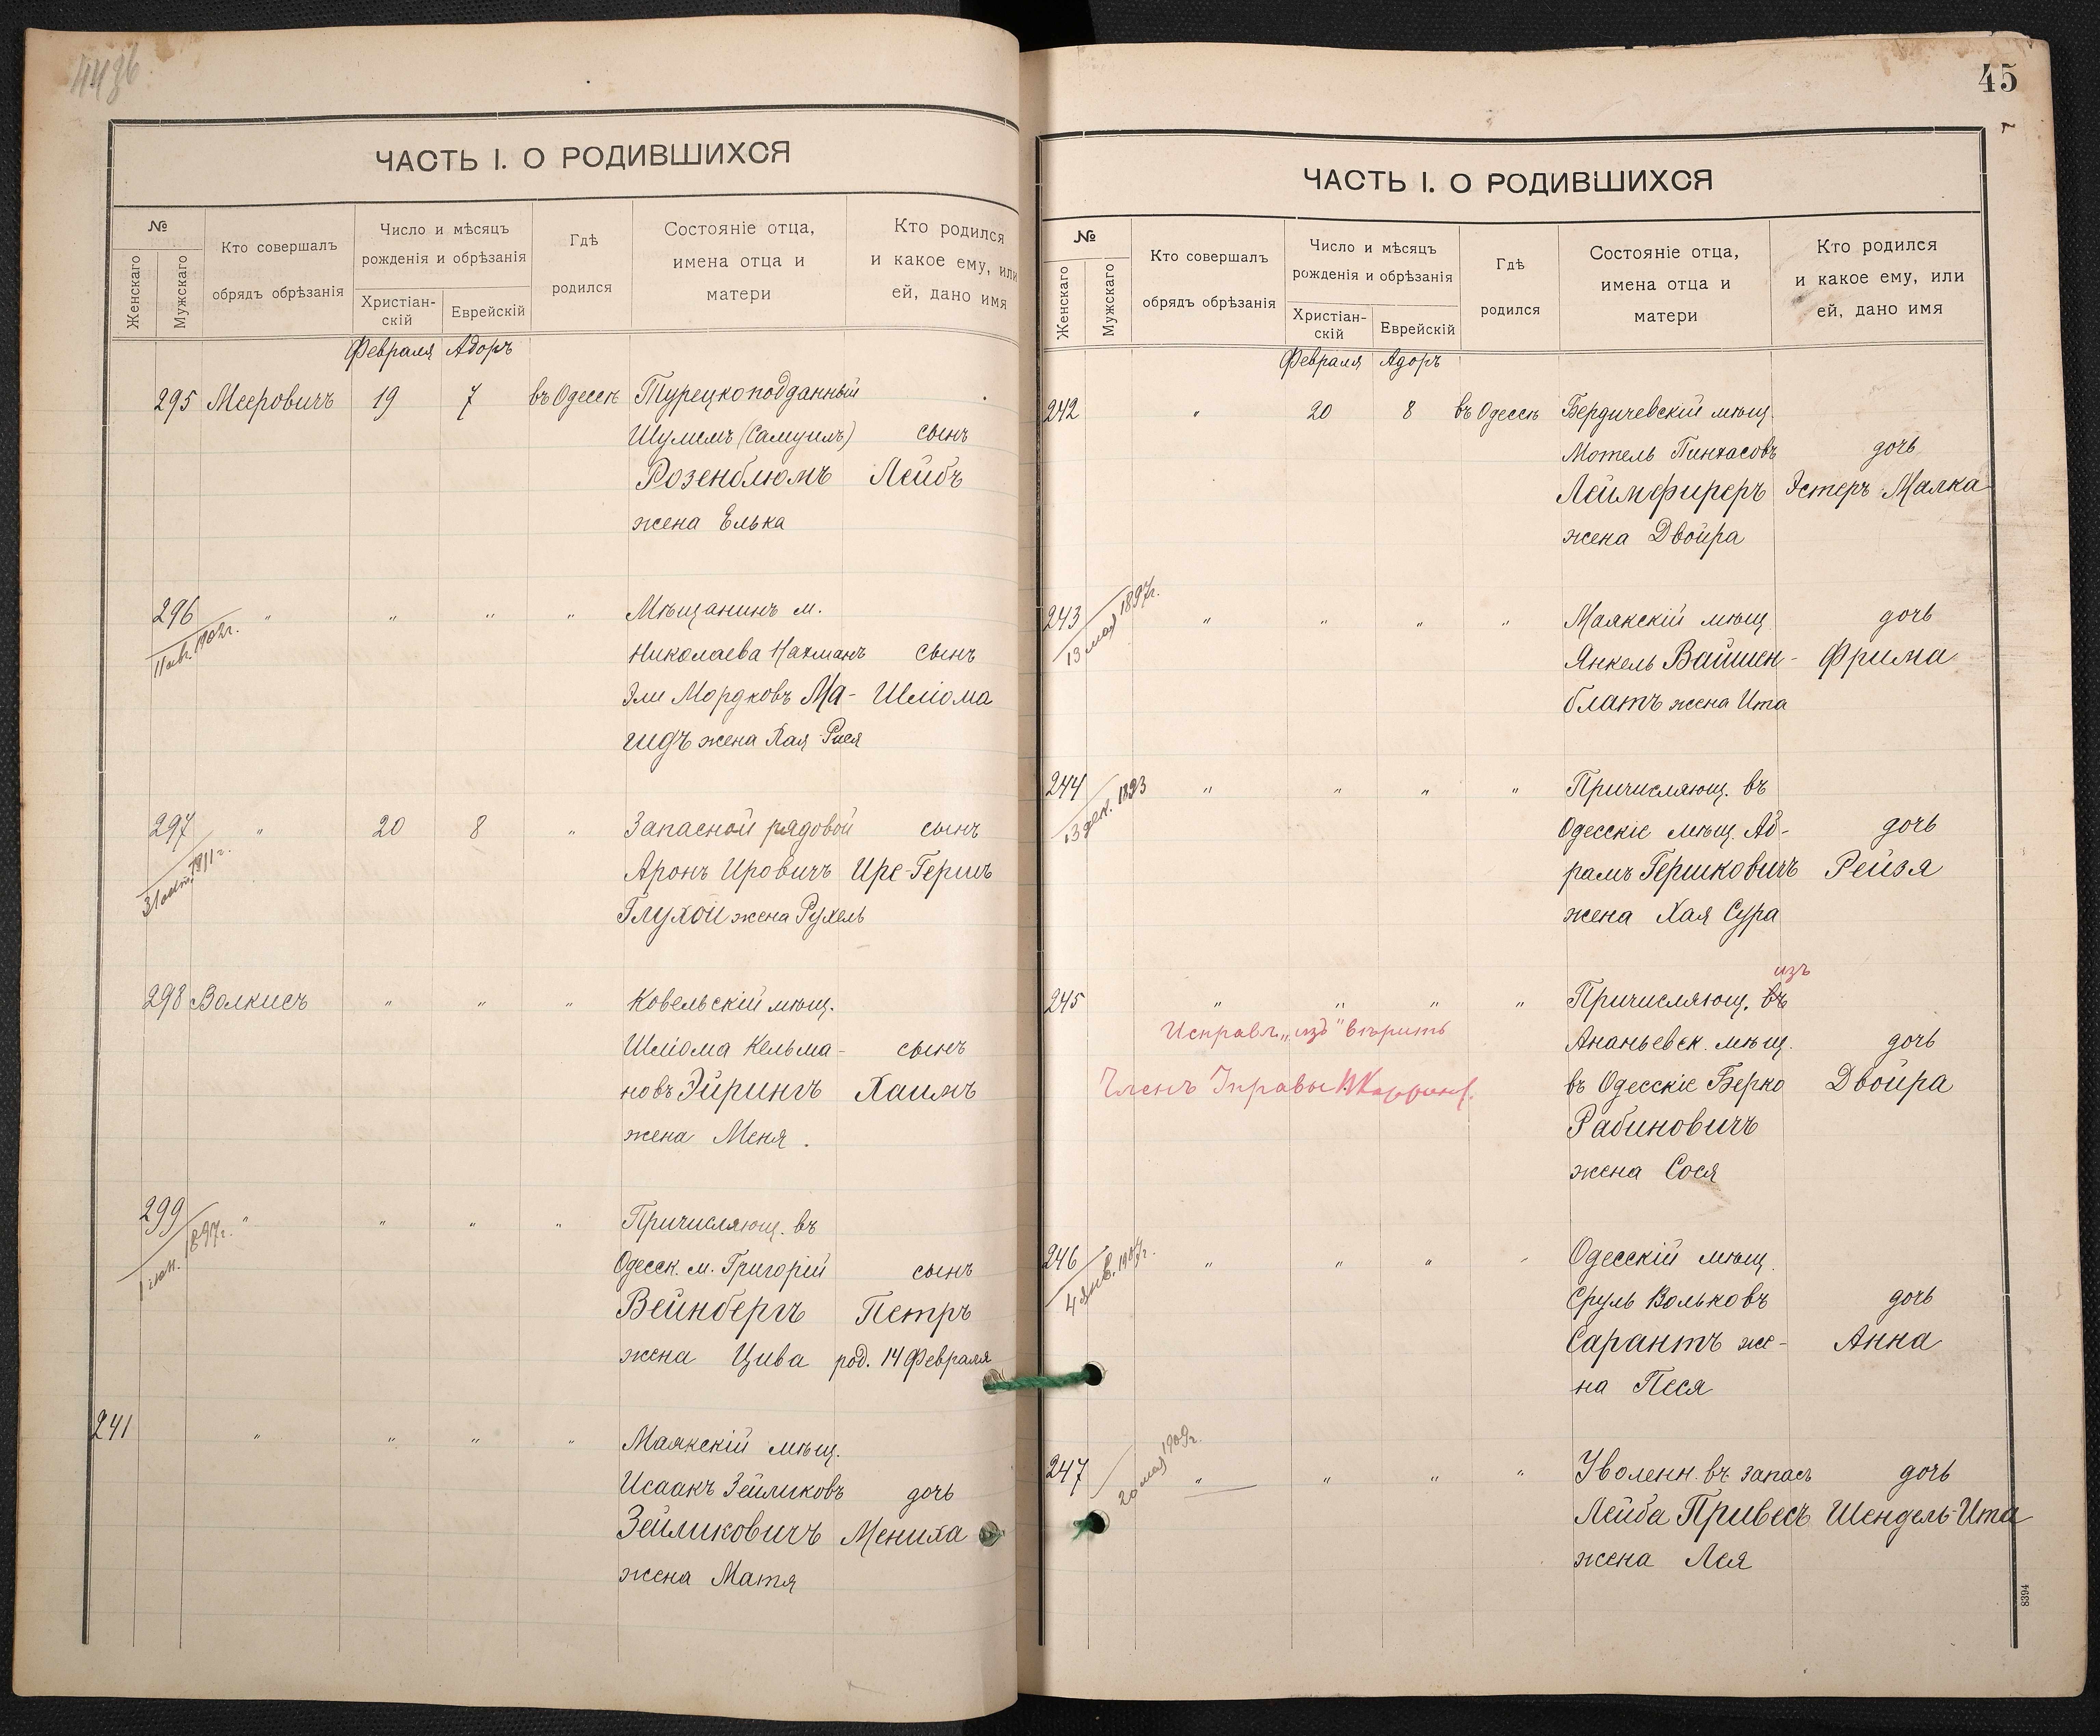 44 зб
ЧАСТЬ I. О РОДИВШИХСЯ
№
Женскаго
Мужскаго
Кто совершалъ
обрядъ обрѣзанія
Число и мѣсяцъ
рожденія и обрѣзанія
Христіан-
скій
Еврейскій
Гдѣ
родился
Состояніе отца,
имена отца и
матери
Кто родился
и какое ему, или
ей, дано имя
Февраля Адоръ
295 Мееровичъ 19 7 въ Одессѣ Турецкоподданный
Шулимъ (Самуилъ) сынъ
Розенблюмъ Лейбъ
жена Елька
296 " " " " Мѣщанинъ м.
11 авг. 1902г.
Николаева Нахманъ сынъ
Эли Мордковъ Ма- Шліома
гидъ жена Хая Рися
297 " 20 8 " Запасной рядовой сынъ
31 окт. 1911 г.
Аронъ Ировичъ Ире-Гершъ
Глухой жена Рухель
298 Волкисъ " " " Ковельскій мѣщ.
Шліома Кельма- сынъ
новъ Эйрингъ Хаимъ
жена Меня.
299 " " " " Причисляющ. въ
1897г.
Одесск. м. Григорій сынъ
Вейнбергъ Петръ
жена Цива род. 14 Февраля
241 " " " " Маякскій мѣщ.
Исаакъ Зейликовъ дочь
Зейликовичъ Мениха
жена Матя
45
ЧАСТЬ I. О РОДИВШИХСЯ
№
Женскаго
Мужскаго
Кто совершалъ
обрядъ обрѣзанія
Число и мѣсяцъ
рожденія и обрѣзанія
Христіан-
скій
Еврейскій
Гдѣ
родился
Состояніе отца,
имена отца и
матери
Кто родился
и какое ему, или
ей, дано имя
Февраля Адоръ
242 " 20 8 въ Одессѣ Бердичевскій мѣщ.
Мотель Пинхасовъ дочь
Леймфиреръ Эстеръ Малка
жена Двойра
243 " " " " Маякскій мѣщ. дочь
13 мая 1897г.
Янкель Вайшен- Фрима
блатъ жена Ита
244 " " " " Причисляющ. въ
13 дек. 1893
Одесскіе мѣщ. Аб- дочь
рамъ Гершковичъ Рейзя
жена Хая Сура
изъ
245 " " " " Причисляющ. въ
Исправл. "изъ" вѣрить
Ананьевск. мѣщ. дочь
въ Одесскіе Берко Двойра
Членъ Управы
Рабиновичъ
жена Сося
246 " " " " Одесскій мѣщ.
4 янв. 1904г.
Сруль Вольковъ дочь
Сарантъ же- Анна
на Песя
247 " " " " Уволенн. въ запасъ дочь
20 мая 1909г.
Лейба Привесъ Шендель-Ита
жена Лея
8394